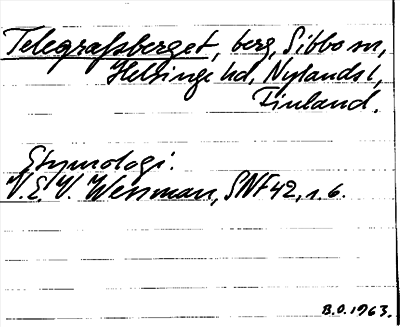 Telegrafsberget, berg, Sibbo sn,
Helsinge hd, Nylands l,
Finland.
Etymologi.
V.E.V. Wessman, SNF 42, s. 6.
B.O. 1963.